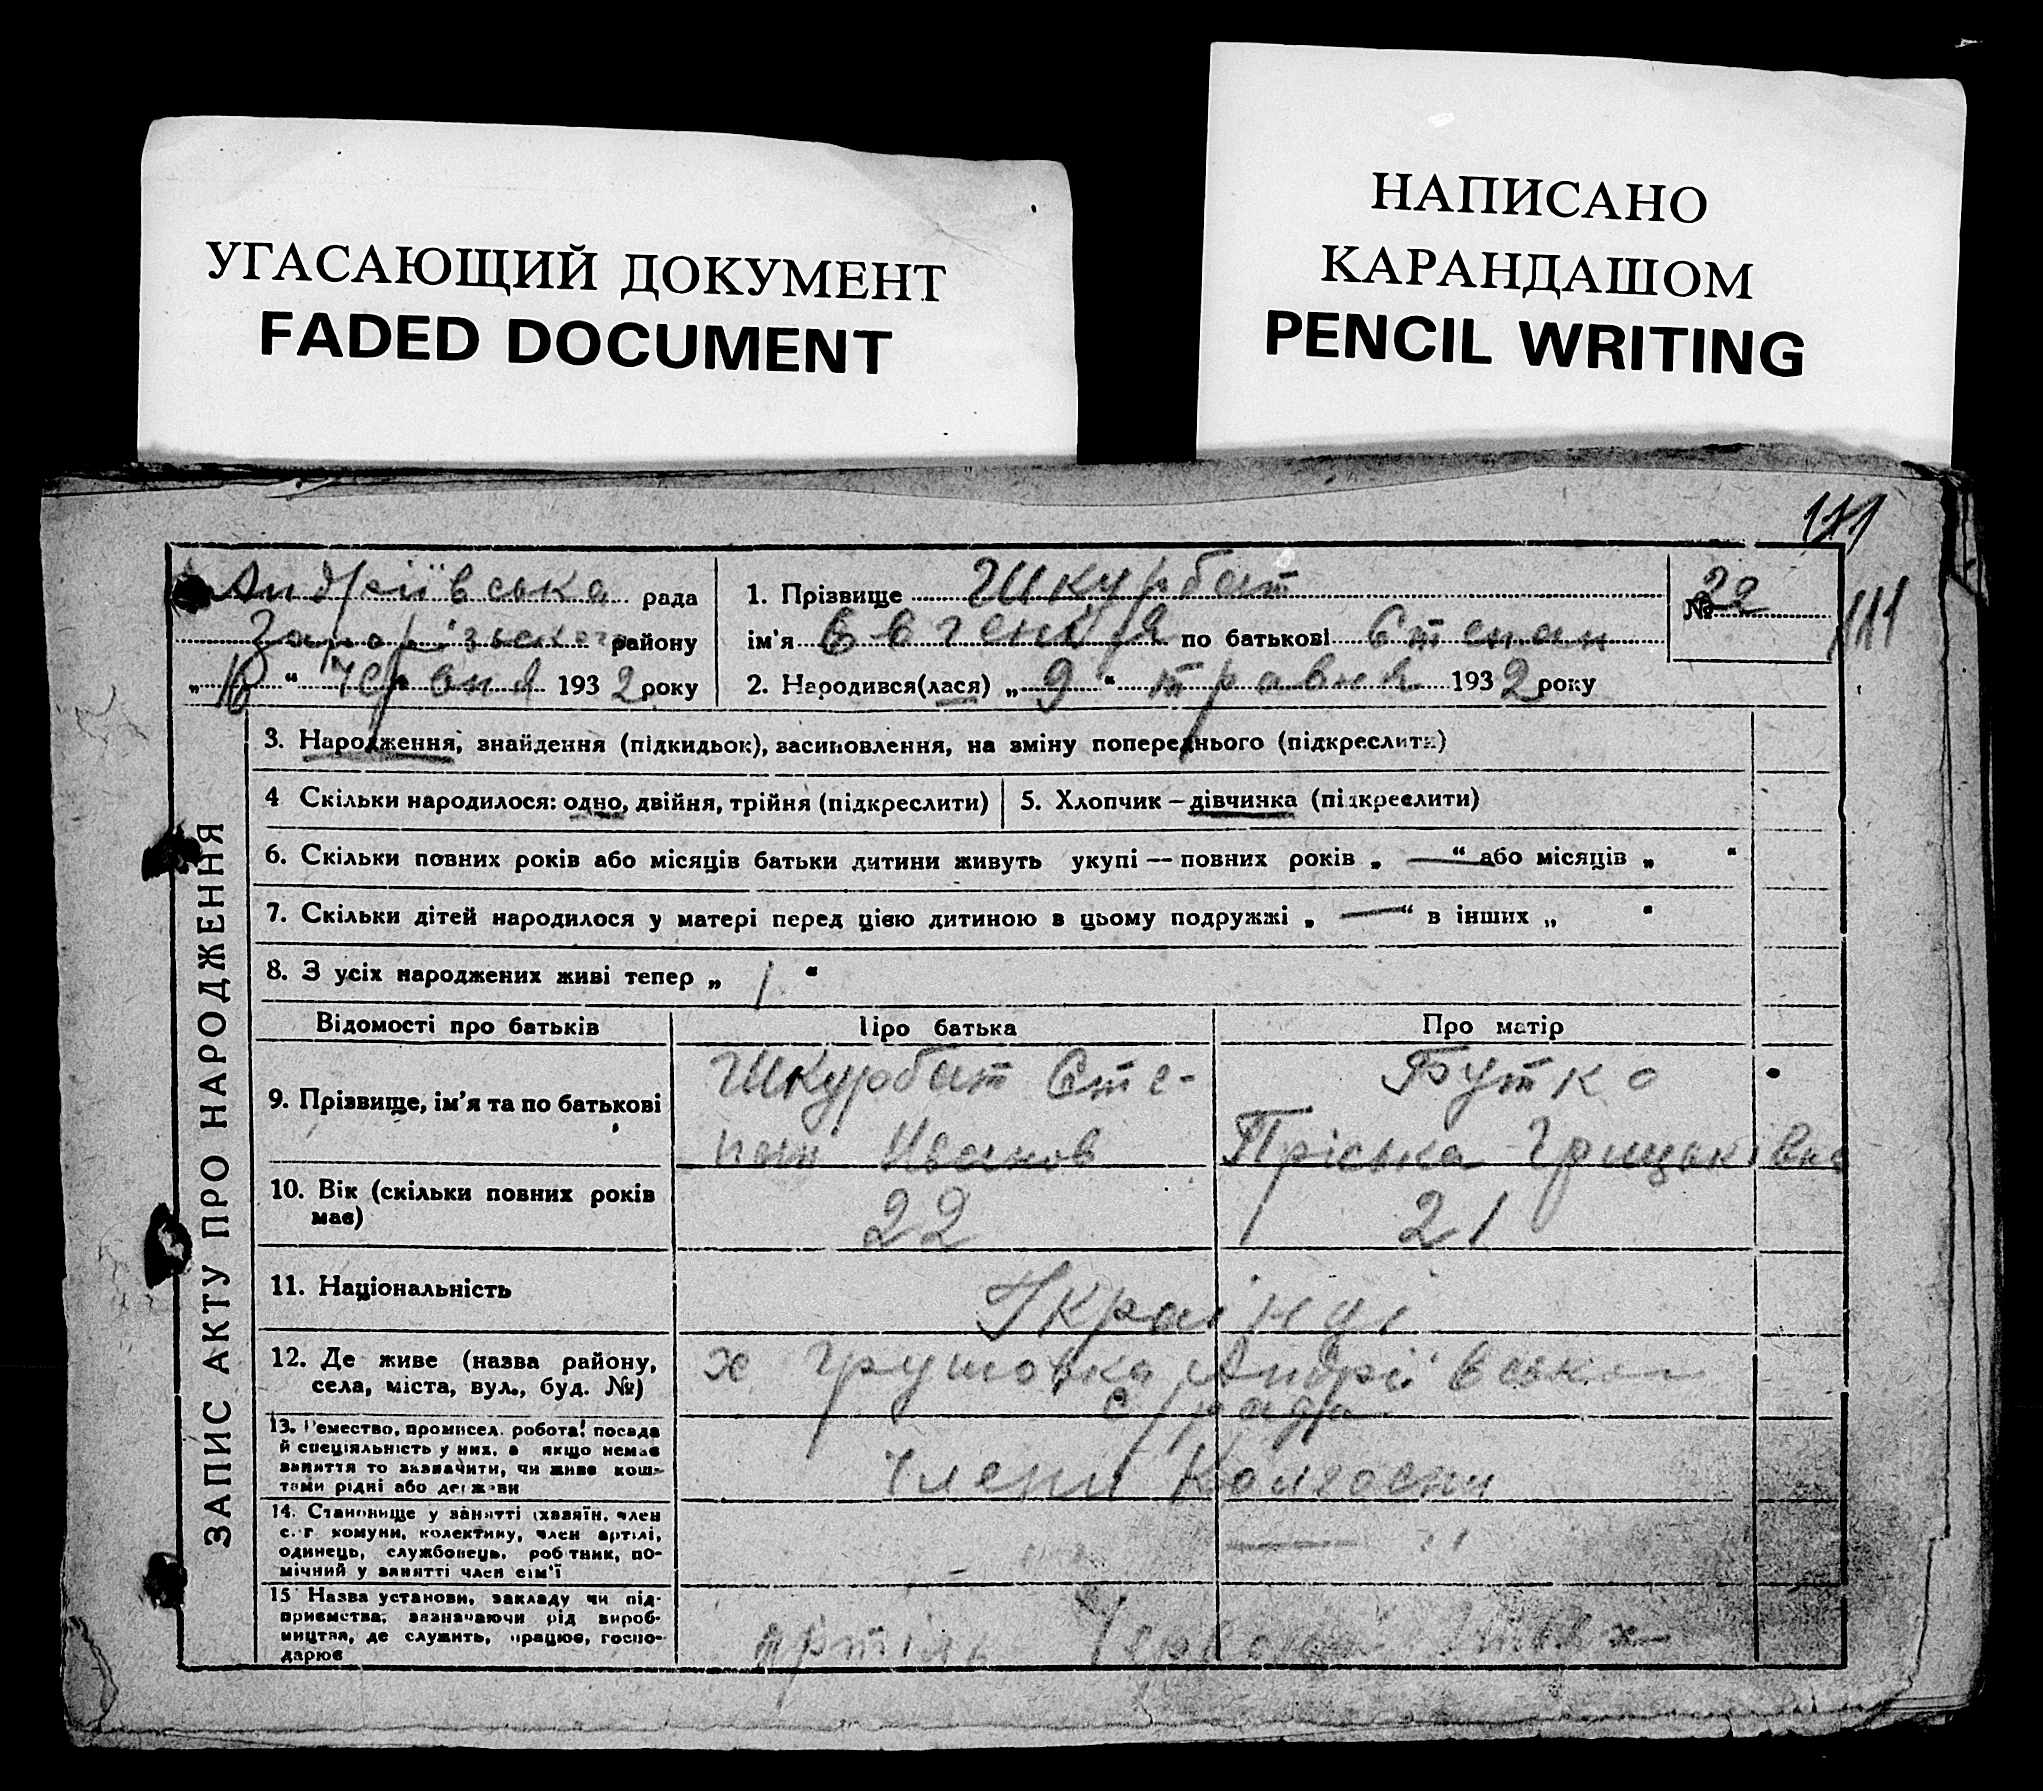 УГАСАЮЩИЙ ДОКУМЕНТ
FADED DOCUMENT
НАПИСАНО
КАРАНДАШОМ
PENCIL WRITING
111
111
Андріївська рада
Запорізького району
" " Червня 1932 року
1. Прізвище Шкурбат
ім'я Евгенія по батькові Степан
2. Народився(лася) „9“ травня 1932 року
№ 22
ЗАПИС АКТУ ПРО НАРОДЖЕННЯ
3. Народження, знайдення (підкидьок), засиновлення, на зміну попереднього (підкреслити)
4 Скільки народилося: одно, двійня, трійня (підкреслити)
5. Хлопчик – дівчинка (підкреслити)
6. Скільки повних років або місяців батьки дитини живуть укупі — повних років „ — “ або місяців „ “
7. Скільки дітей народилося у матері перед цією дитиною в цьому подружжі „ — “ в інших „ “
8. З усіх народжених живі тепер „ 1 “
Відомості про батьків
Про батька
Про матір
9. Прізвище, ім'я та по батькові
Шкурбат Сте-
пан Иванов
Бутко
Пріська Грицьківна
10. Вік (скільки повних років
має)
22
21
11. Національність
Українці
12. Де живе (назва району,
села, міста, вул., буд. №)
х Грушовка Андріївської
с/рада
13. Ремество, промисел, робота, посада
й спеціяльність у них, а якщо немає
заняття то зазначити, чи живе кош-
тами рідні або держави
Члени Колгоспу
14. Становище у занятті (хазяїн, член
с.-г. комуни, колективу, член артілі,
одинець, службовець, робітник, по-
мічний у занятті член сім'ї
— " —
— "
15 Назва установи, закладу чи під-
приємства, зазначаючи рід вироб-
ництва, де служить, працює, госпо-
дарює
артіль Червоний